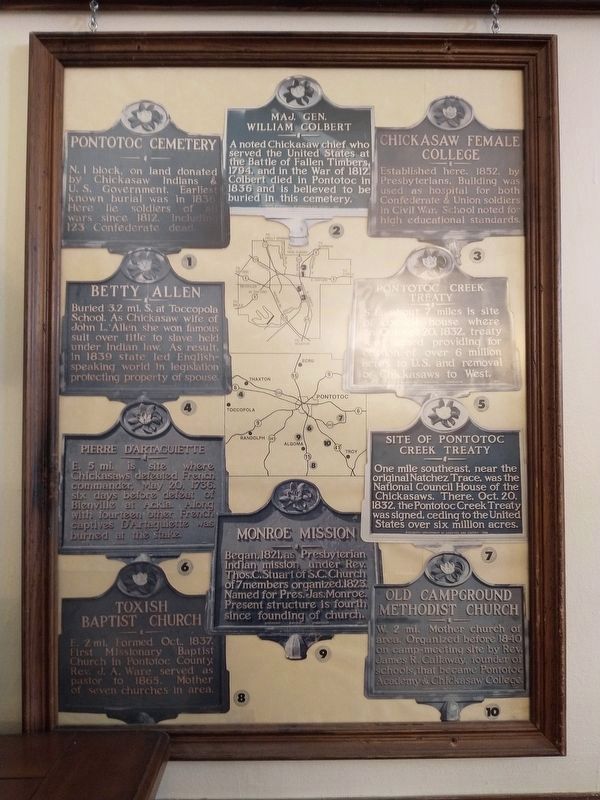 PONTOTOC CEMETERY
N. 1 block, on land donated
by Chickasaw Indians &
U. S. Government. Earliest
known burial was in 1836
Here lie soldiers of
wars since 1812. Including
123 Confederate dead.
1
MAJ. GEN.
WILLIAM COLBERT
A noted Chickasaw chief who
served the United States at
the Battle of Fallen Timbers,
1794, and in the War of 1812.
Colbert died in Pontotoc in
1836 and is believed to be
buried in this cemetery.
2
CHICKASAW FEMALE
COLLEGE
Established here, 1852, by
Presbyterians. Building was
used as hospital for both
Confederate & Union soldiers
in Civil War. School noted for
high educational standards.
3
BETTY ALLEN
Buried 3.2 mi. S. at Toccopola
School. As Chickasaw wife of
John L. Allen she won famous
suit over title to slave held
under Indian law. As result,
in 1839 state led English-
speaking world in legislation
protecting property of spouse.
4
PONTOTOC CREEK
TREATY
7 miles is site
house where
20, 1832, treaty
providing for
of over 6 million
to U.S. and removal
Chickasaws to West.
5
ECRU
THAXTON
PONTOTOC
TOCCOPOLA
RANDOLPH
ALGOMA
TROY
6
4
7
9
10
8
PIERRE D'ARTAGUIETTE
E. 5 mi. is site where
Chickasaws defeated French
commander, May 20, 1736,
six days before defeat of
Bienville at Ackia. Along
with fourteen other French
captives D'Artaguiette was
burned at the stake.
6
SITE OF PONTOTOC
CREEK TREATY
One mile southeast, near the
original Natchez Trace, was the
National Council House of the
Chickasaws. There, Oct. 20,
1832, the Pontotoc Creek Treaty
was signed, ceding to the United
States over six million acres.
7
MONROE MISSION
Began, 1821, as Presbyterian
Indian mission under Rev.
Thos. C. Stuart of S.C. Church
of 7 members organized, 1823.
Named for Pres. Jas. Monroe.
Present structure is fourth
since founding of church.
9
TOXISH
BAPTIST CHURCH
E. 2 mi. Formed Oct. 1837.
First Missionary Baptist
Church in Pontotoc County.
Rev. J. A. Ware served as
pastor to 1865. Mother
of seven churches in area.
8
OLD CAMPGROUND
METHODIST CHURCH
W. 2 mi. Mother church of
area. Organized before 1840
on camp-meeting site by Rev.
James R. Callaway, founder of
schools that became Pontotoc
Academy & Chickasaw College.
10